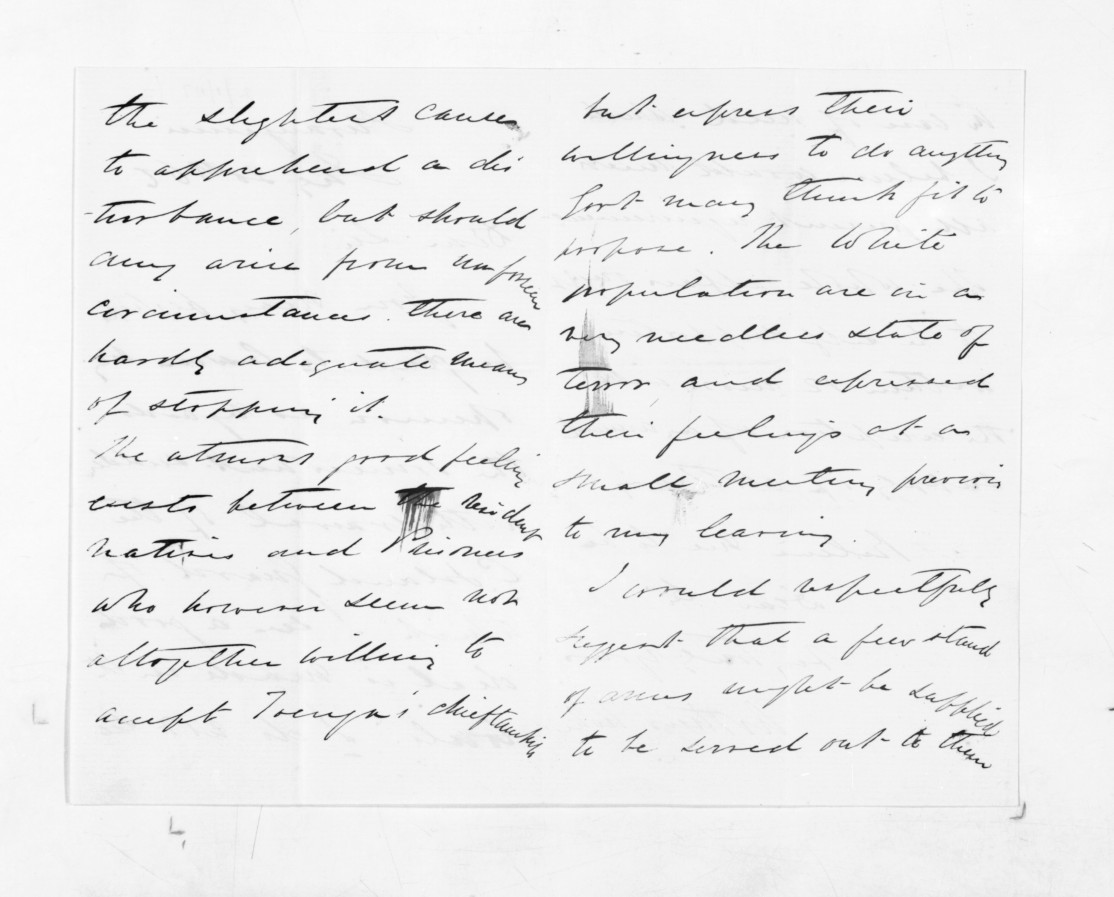 the slightest cause
to apprehend a dis
-turbance, but should
any arise from unforseen
circumstances. there are
hardly adequate means
of stopping it.
The utmost good feeling
exists between the resident
natives and Prisoners
who however seem not
altogether willing to
accept chieftanship
but express their
willingness to do anything
Govt may think fit to
propose. The White
population are in a
very needless state of
terror, and expressed
their feelings at a
small meeting previous
to my leaving.
I would respectfully
suggest that a few stand
of arms might be supplied
to be served out to them